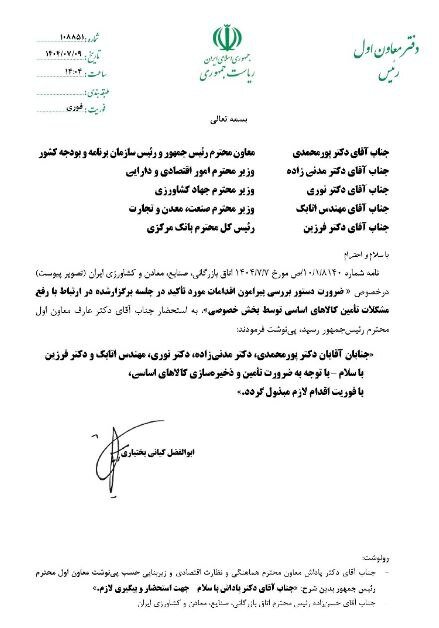 دفتر معاون اول
رئیس
جمهوری اسلامی ایران
ریاست جمهوری
شماره: ۱۰۸۸۵۱
تاریخ: ۱۴۰۴/۰۷/۰۹
ساعت: ۱۴:۰۴
طبقه‌بندی:
فوریت: فوری
بسمه تعالی
جناب آقای دکتر پورمحمدی معاون محترم رئیس جمهور و رئیس سازمان برنامه و بودجه کشور
جناب آقای دکتر مدنی زاده وزیر محترم امور اقتصادی و دارایی
جناب آقای دکتر نوری وزیر محترم جهاد کشاورزی
جناب آقای مهندس اتابک وزیر محترم صنعت، معدن و تجارت
جناب آقای دکتر فرزین رئیس کل محترم بانک مرکزی
با سلام و احترام
نامه شماره ۱۰/۱/۸۱۴۰/ص مورخ ۱۴۰۴/۷/۷ اتاق بازرگانی، صنایع، معادن و کشاورزی ایران (تصویر پیوست)
درخصوص «ضرورت دستور بررسی پیرامون اقدامات مورد تأکید در جلسه برگزارشده در ارتباط با رفع
مشکلات تأمین کالاهای اساسی توسط بخش خصوصی»، به استحضار جناب آقای دکتر عارف معاون اول
محترم رئیس‌جمهور رسید، پی‌نوشت فرمودند:
«جنابان آقایان دکتر پورمحمدی، دکتر مدنی‌زاده، دکتر نوری، مهندس اتابک و دکتر فرزین
با سلام – با توجه به ضرورت تأمین و ذخیره‌سازی کالاهای اساسی،
با فوریت اقدام لازم مبذول گردد.»
ابوالفضل کیانی بختیاری
رونوشت:
- جناب آقای دکتر پاداش معاون محترم هماهنگی و نظارت اقتصادی و زیربنایی حسب پی‌نوشت معاون اول محترم
رئیس جمهور بدین شرح: «جناب آقای دکتر پاداش با سلام – جهت استحضار و پیگیری لازم.»
- جناب آقای حسن‌زاده رئیس محترم اتاق بازرگانی، صنایع، معادن و کشاورزی ایران